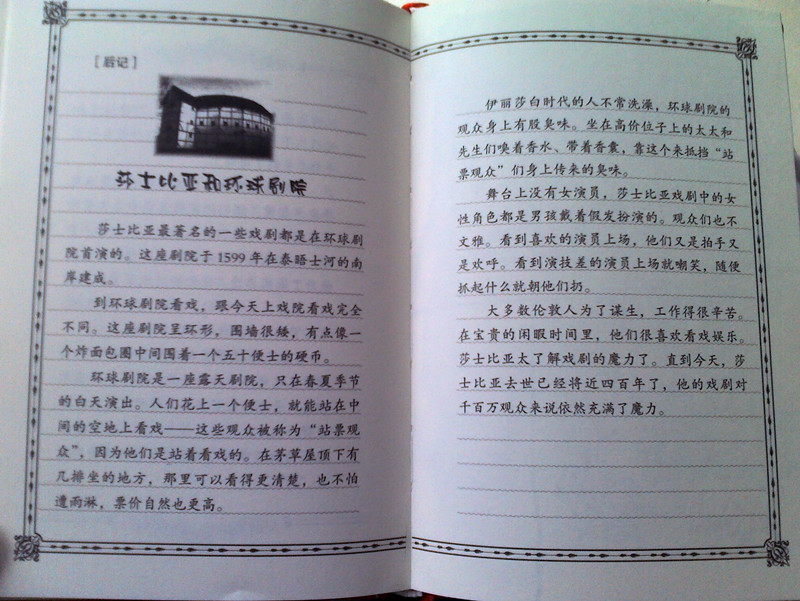 [后记]
莎士比亚和环球剧院
莎士比亚最著名的一些戏剧都是在环球剧
院首演的。这座剧院于1599年在泰晤士河的南
岸建成。
到环球剧院看戏，跟今天上戏院看戏完全
不同。这座剧院呈环形，围墙很矮，有点像一
个炸面包圈中间围着一个五十便士的硬币。
环球剧院是一座露天剧院，只在春夏季节
的白天演出。人们花上一个便士，就能站在中
间的空地上看戏——这些观众被称为“站票观
众”，因为他们是站着看戏的。在茅草屋顶下有
几排坐的地方，那里可以看得更清楚，也不怕
遭雨淋，票价自然也更高。
伊丽莎白时代的人不常洗澡，环球剧院的
观众身上有股臭味。坐在高价位子上的太太和
先生们嗅着香水、带着香囊，靠这个来抵挡“站
票观众”们身上传来的臭味。
舞台上没有女演员，莎士比亚戏剧中的女
性角色都是男孩戴着假发扮演的。观众们也不
文雅。看到喜欢的演员上场，他们又是拍手又
是欢呼。看到演技差的演员上场就嘲笑，随便
抓起什么就朝他们扔。
大多数伦敦人为了谋生，工作得很辛苦。
在宝贵的闲暇时间里，他们很喜欢看戏娱乐。
莎士比亚太了解戏剧的魔力了。直到今天，莎
士比亚去世已经将近四百年了，他的戏剧对
千百万观众来说依然充满了魔力。